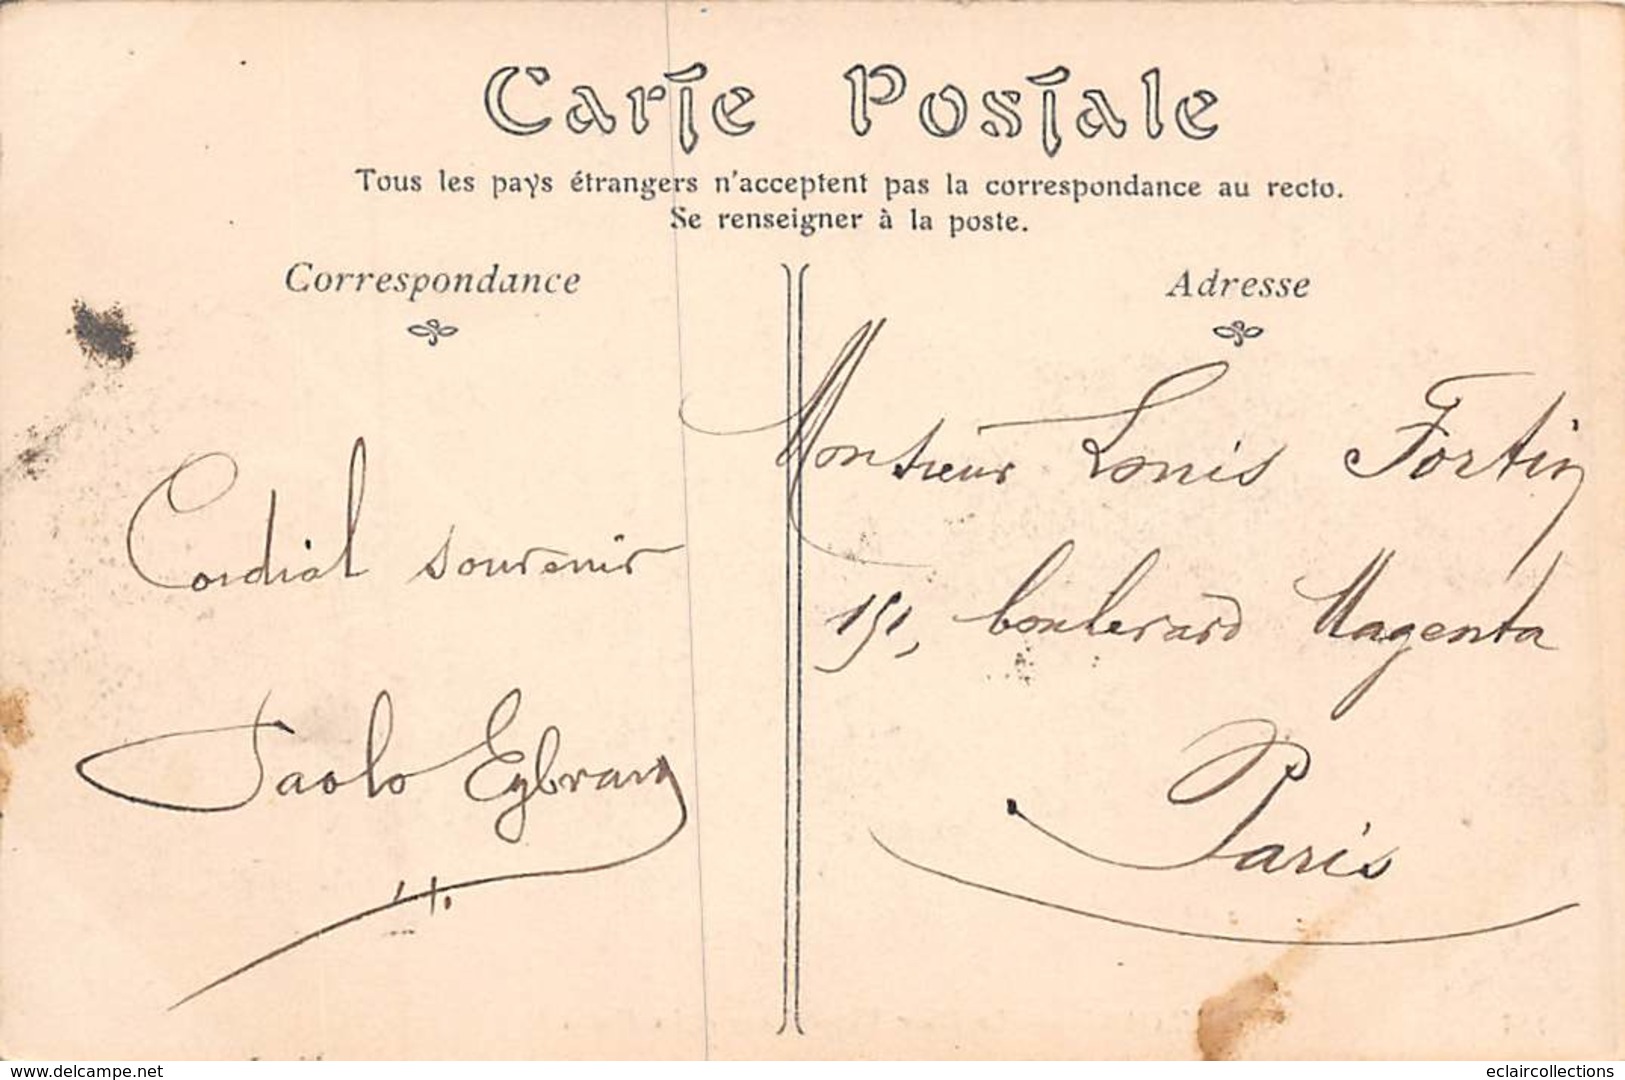 Carte Postale
Tous les pays étrangers n'acceptent pas la correspondance au recto.
Se renseigner à la poste.
Correspondance
Adresse
Cordial souvenir
Paolo
Monsieur Louis Fortin
151, boulevard Magenta
Paris
www.delcampe.net
eclaircollections